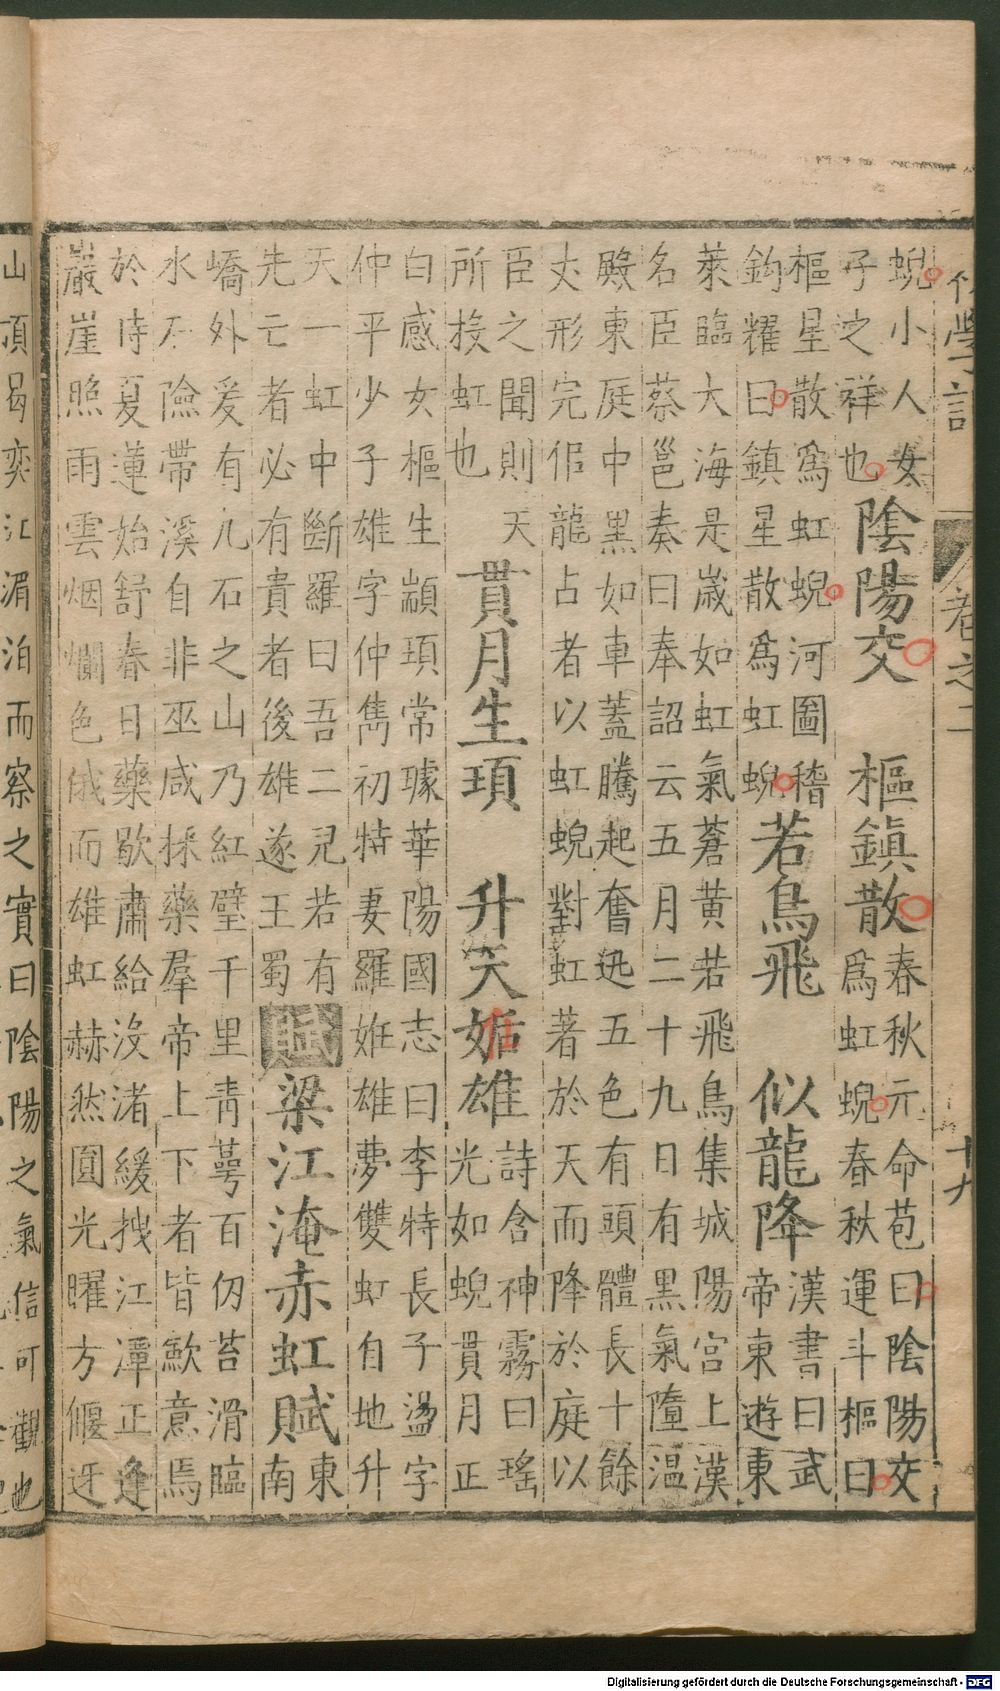 學記 卷之二 十九
蜺小人女
子之祥也
陰陽交 樞鎮散
春秋元命苞曰陰陽交
爲虹蜺春秋運斗樞曰
樞星散爲虹蜺河圖稽
鈎耀曰鎮星散爲虹蜺
若鳥飛 似龍降
漢書曰武
帝東遊東
萊臨大海是歲如虹氣蒼黃若飛鳥集城陽宮上漢
名臣蔡邕奏曰奉詔云五月二十九日有黑氣墮溫
殿東庭中黑如車蓋騰起奮迅五色有頭體長十餘
丈形完佀龍占者以虹蜺對虹著於天而降於庭以
臣之聞則天
所投虹也
貫月生頊 升天妬雄
詩含神霧曰瑤
光如蜺貫月正
白感女樞生顓頊常璩華陽國志曰李特長子盪字
仲平少子雄字仲雋初特妻羅姙雄夢雙虹自地升
天一虹中斷羅曰吾二兒若有
先亡者必有貴者後雄遂王蜀
賦 梁江淹赤虹賦
東
南
嶠外爰有九石之山乃紅壁千里青萼百仞苔滑臨
水石險帶溪自非巫咸採藥羣帝上下者皆歛意焉
於時夏蓮始舒春日藥歇肅給沒渚緩拽江潭正逢
巖崖照雨雲烟爛色俄而雄虹赫然圓光曜方偃迓
山頂曷奕江湄泊而察之實曰陰陽之氣信可觀也
Digitalisierung gefördert durch die Deutsche Forschungsgemeinschaft - DFG